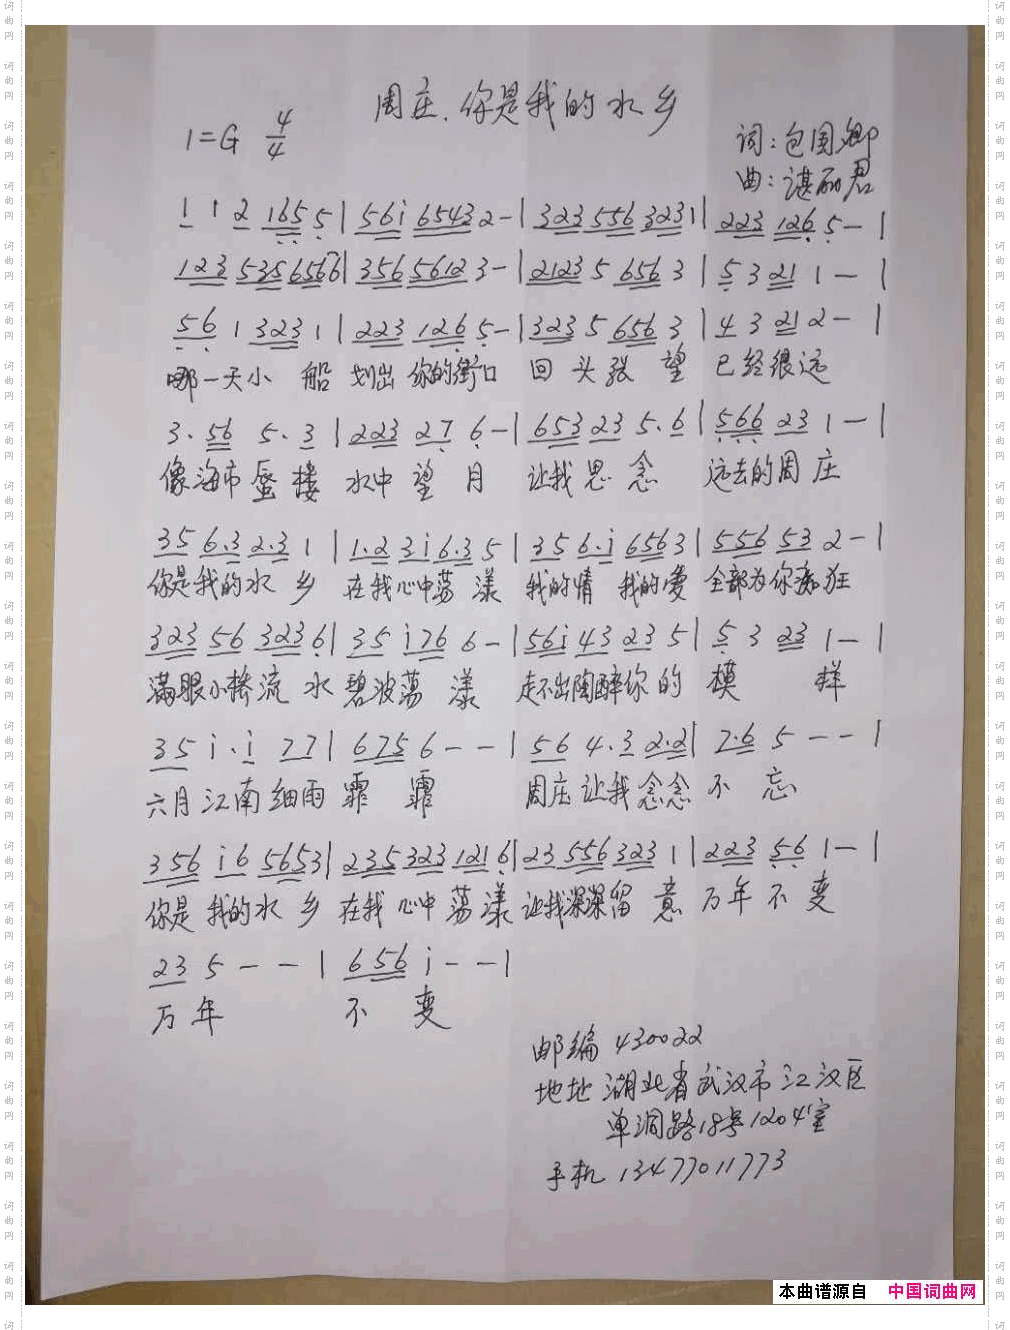 周庄.你是我的水乡
1=G 4/4
词:包国卿
曲:谌丽君
1 1 2 165 5 | 56i 65432 - | 323 556 3231 | 223 126 5 - |
123 535 6566 | 356 5612 3 - | 2123 5 656 3 | 5 3 21 1 - |
56 1 323 1 | 223 126 5 - | 323 5 656 3 | 4 3 21 2 - |
哪一天小 船 划出 你的街口 回 头张 望 已经很远
3. 56 5. 3 | 223 27 6 - | 653 23 5. 6 | 566 23 1 - |
像海市蜃楼 水中 望 月 让我思 念 远去的周庄
35 6.3 2.3 1 | 1.2 3i 6.3 5 | 35 6.i 6563 | 556 53 2 - |
你是我的水 乡 在我心中荡 漾 我的情 我的爱 全部为你痴狂
323 56 323 6 | 35 i76 6 - | 56i 43 23 5 | 5 3 23 1 - |
满眼小桥流 水 碧波荡 漾 走不出陶醉你的 模 样
35 i . i 77 | 675 6 - - | 56 4.3 2.2 | 7.6 5 - - |
六月江南细雨 霏 霏 周庄让我念念 不 忘
356 i6 5653 | 235 323 121 6 | 23 556 323 1 | 223 56 1 - |
你是 我的水 乡 在我 心中 荡漾 让我深深留 意 万年不 变
23 5 - - | 656 i - - |
万年 不 变
邮编 430022
地址 湖北省武汉市江汉区
单洞路18号1204室
手机 13477011773
本曲谱源自 中国词曲网